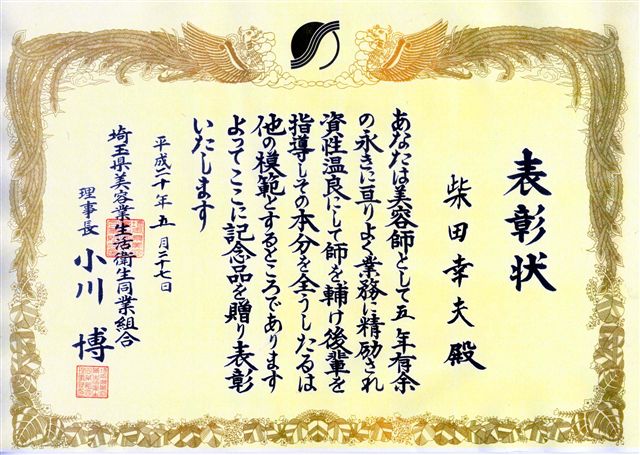 表彰状
柴田幸夫殿
あなたは美容師として五年有余
の永きに亘りよく業務に精励され
資性温良にして師を輔け後輩を
指導しその本分を全うしたるは
他の模範とするところであります
よってここに記念品を贈り表彰
いたします
平成二十年五月二十七日
埼玉県美容業生活衛生同業組合
理事長 小川博